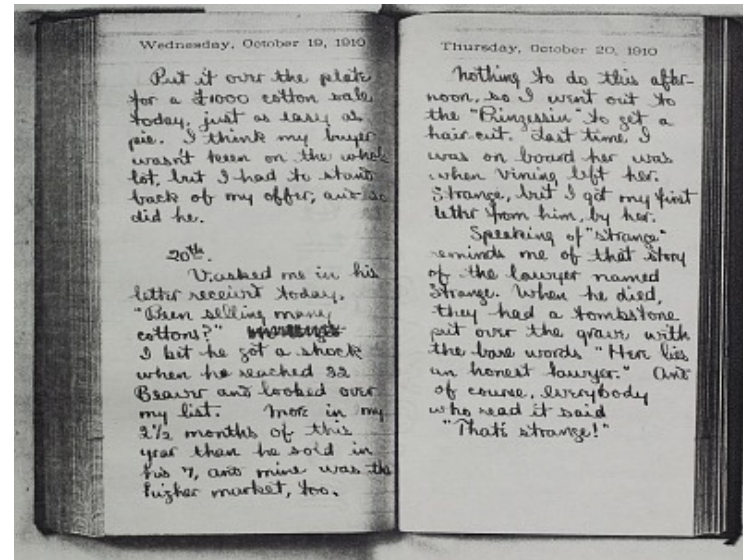 Wednesday, October 19, 1910
Put it over the plate
for a £1000 cotton sale
today, just as easy as
pie. I think my buyer
wasn't keen on the whole
lot, but I had to stand
back of my offer, and so
did he.
20th.
V. asked me in his
letter receiv'd today,
"Been selling many
cottons?"
I bet he got a shock
when he reached 32
Beaver and looked over
my list. More in my
2½ months of this
year than he sold in
his 7, and mine was the
higher market, too.
Thursday, October 20, 1910
Nothing to do this after-
noon, so I went out to
the "Prinzessin" to get a
hair-cut. Last time I
was on board her was
when Vining left her.
Strange, but I got my first
letter from him, by her.
Speaking of "strange"
reminds me of that story
of the lawyer named
Strange. When he died,
they had a tombstone
put over the grave with
the bare words "Here lies
an honest lawyer." And
of course, everybody
who read it said
"That's strange!"